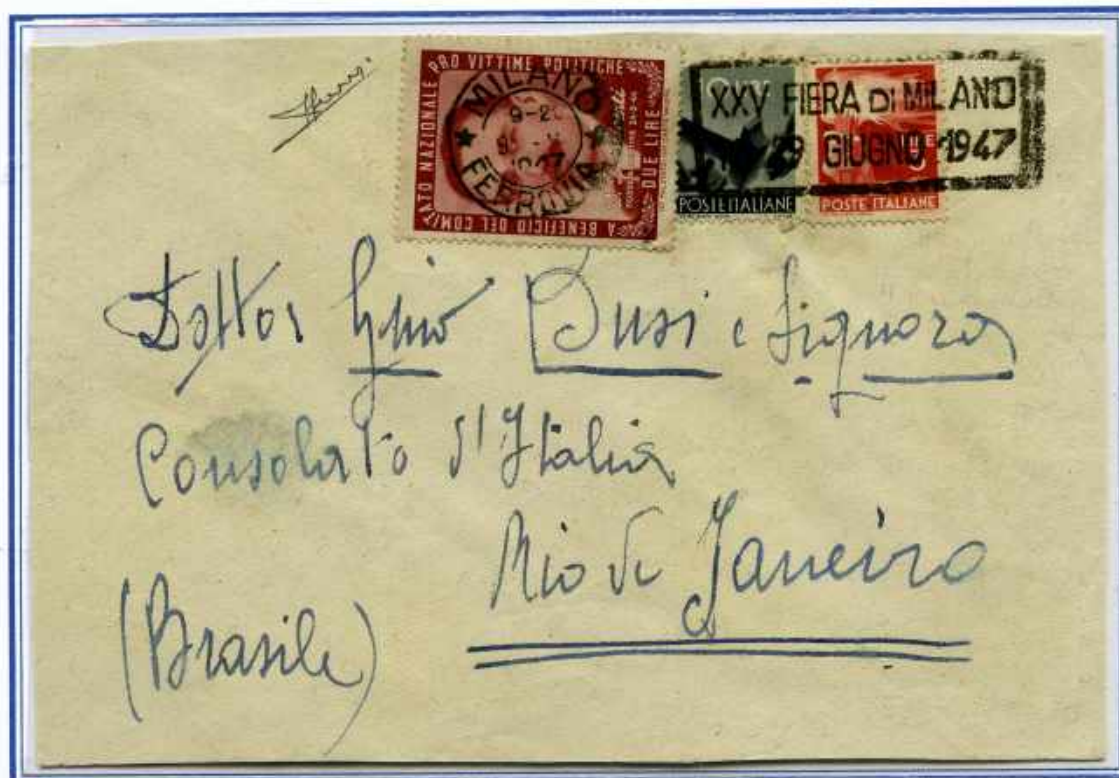 A BENEFICIO DEL COMITATO NAZIONALE PRO VITTIME POLITICHE
DUE LIRE
MILANO
FERROVIA
1947
XXV FIERA DI MILANO
29 GIUGNO 1947
POSTE ITALIANE
POSTE ITALIANE
Dottor Gino Dusi e Signora
Consolato d'Italia
Rio de Janeiro
(Brasile)